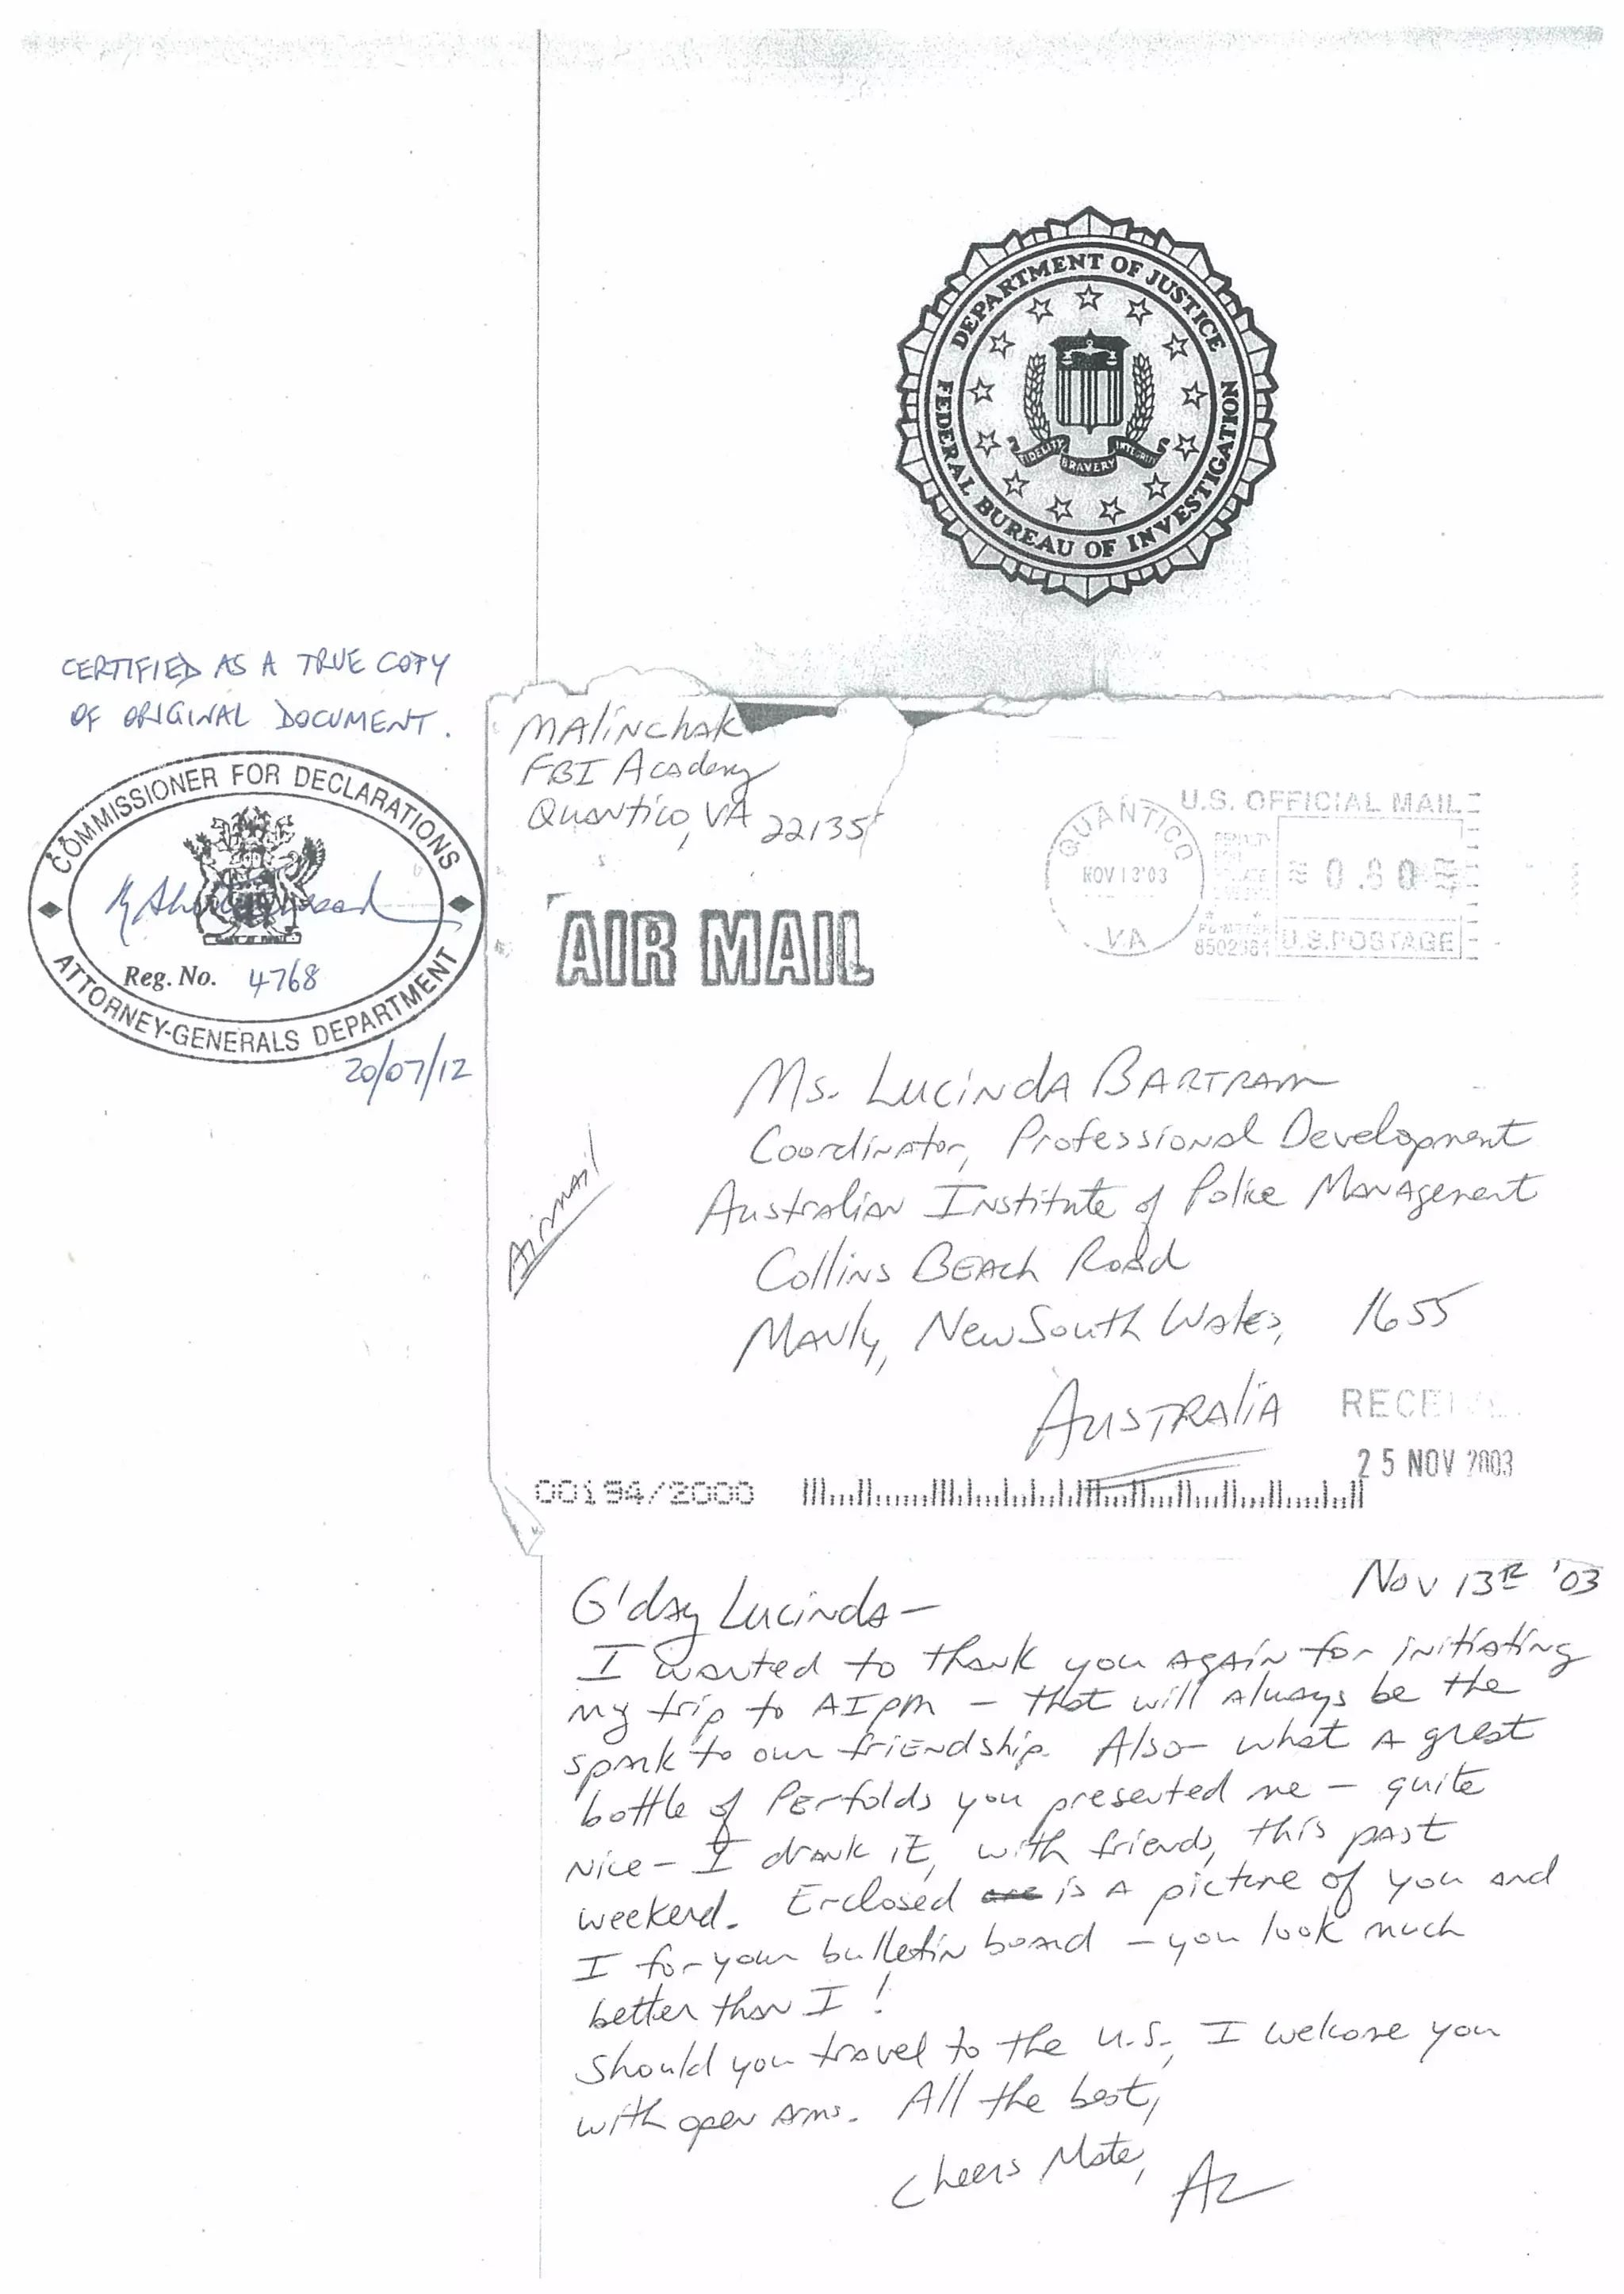 DEPARTMENT OF JUSTICE
FEDERAL BUREAU OF INVESTIGATION
FIDELITY BRAVERY INTEGRITY
CERTIFIED AS A TRUE COPY
OF ORIGINAL DOCUMENT.
COMMISSIONER FOR DECLARATIONS
Reg. No. 4768
ATTORNEY-GENERALS DEPARTMENT
20/07/12
MAlinchak
FBI Academy
Quantico, VA 22135
U.S. OFFICIAL MAIL
QUANTICO
NOV 13'03
VA
U.S.POSTAGE
AIR MAIL
Ms. Lucinda Bartram
Coordinator, Professional Development
Australian Institute of Police Management
Collins Beach Road
Manly, New South Wales, 1655
Australia
Airmail
25 NOV 2003
00194/2000
Nov 13th '03
G'day Lucinda —
I wanted to thank you again for initiating
my trip to AIPM — that will always be the
spark to our friendship. Also — what a great
bottle of Penfolds you presented me — quite
nice — I drank it, with friends, this past
weekend. Enclosed are is a picture of you and
I for your bulletin board — you look much
better than I !
Should you travel to the U.S., I welcome you
with open arms. All the best,
Cheers Mate,